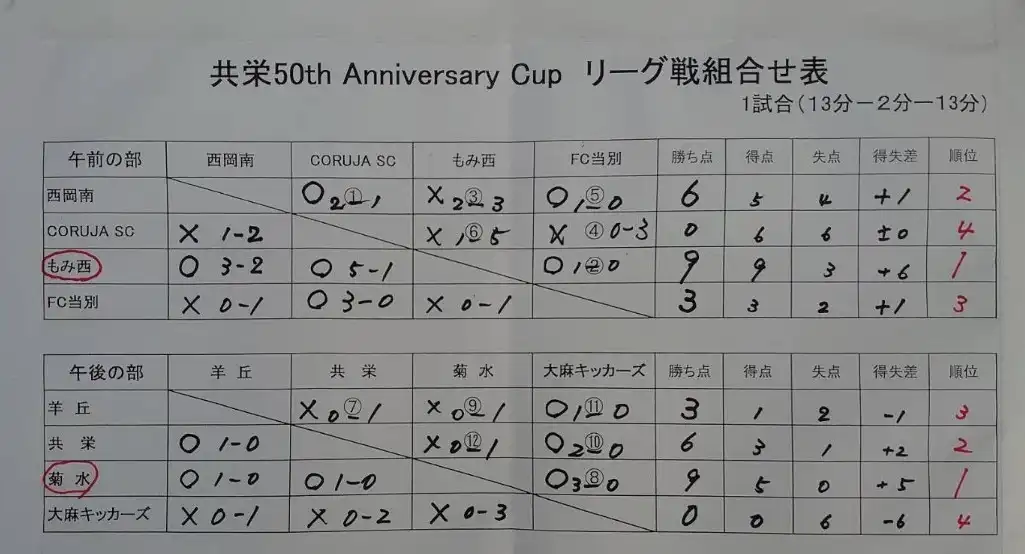 共栄50th Anniversary Cup リーグ戦組合せ表
1試合(13分－2分－13分)
午前の部 西岡南 CORUJA SC もみ西 FC当別 勝ち点 得点 失点 得失差 順位
西岡南 O 2①1 X 2③3 O 1⑤0 6 5 4 +1 2
CORUJA SC X 1-2 X 1⑥5 X ④0-3 0 6 6 ±0 4
もみ西 O 3-2 O 5-1 O 1②0 9 9 3 +6 1
FC当別 X 0-1 O 3-0 X 0-1 3 3 2 +1 3
午後の部 羊丘 共栄 菊水 大麻キッカーズ 勝ち点 得点 失点 得失差 順位
羊丘 X 0⑦1 X 0⑨1 O 1⑪0 3 1 2 -1 3
共栄 O 1-0 X 0⑫1 O 2⑩0 6 3 1 +2 2
菊水 O 1-0 O 1-0 O 3⑧0 9 5 0 +5 1
大麻キッカーズ X 0-1 X 0-2 X 0-3 0 0 6 -6 4